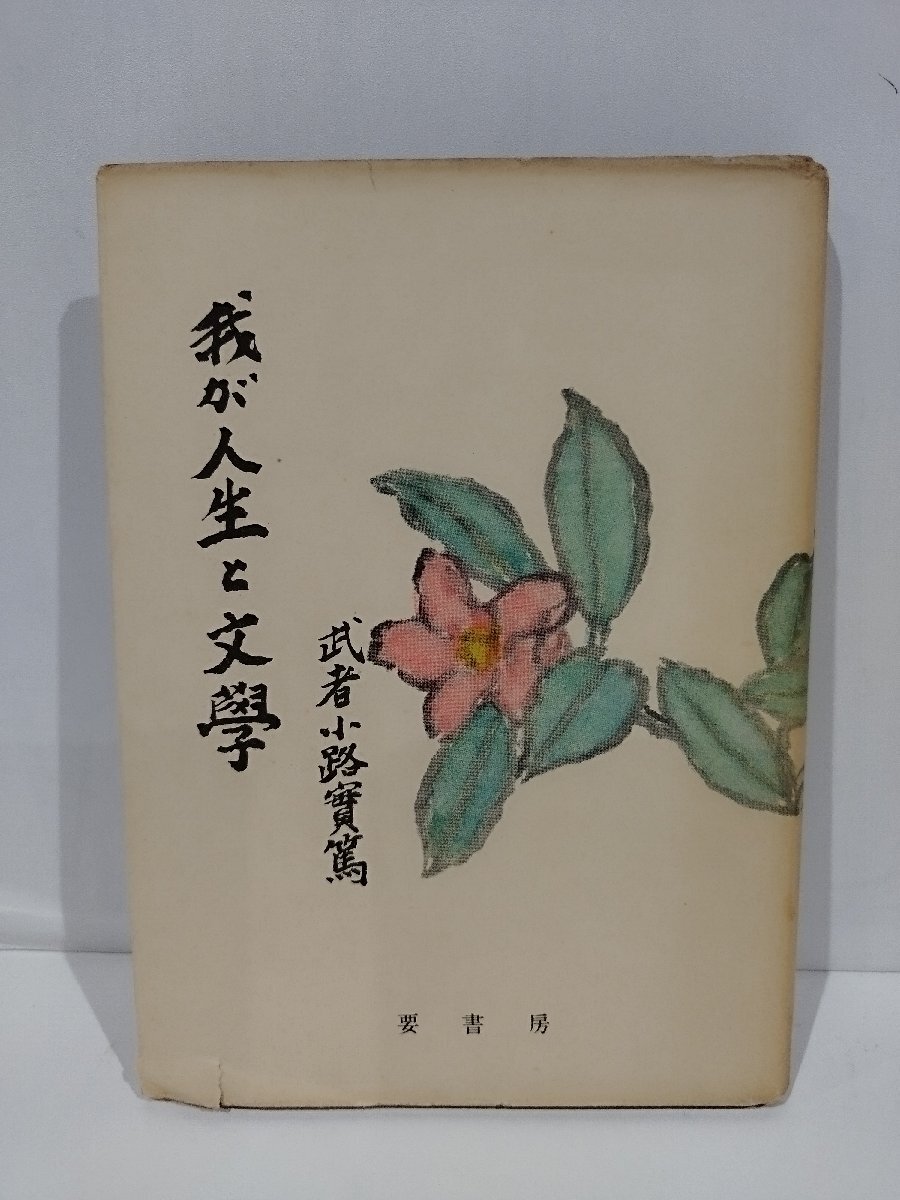 我が人生と文學
武者小路實篤
要書房